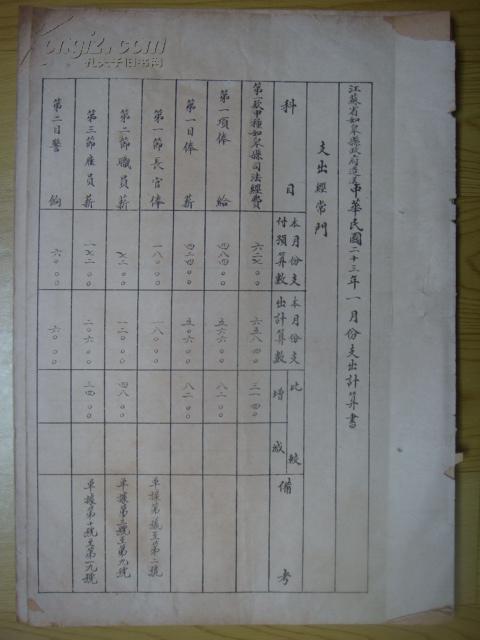 江蘇省如皋縣政府造送中華民國二十三年一月份支出計算書
支出經常門
科目
本月份支付預算數
本月份支出計算數
比較
增
減
備考
第一款申種如皋縣司法經費
第一項俸給
四八四〇〇
五六六〇〇
八二〇〇
第一目俸薪
四二四〇〇
五〇六〇〇
八二〇〇
第一節長官俸
一八〇〇〇
一八〇〇〇
單據第一號至第二號
第二節職員薪
七二〇〇
一二〇〇〇
四八〇〇
單據第三號至第九號
第三節雇員薪
一七二〇〇
二〇六〇〇
三四〇〇
單據第十號至第一九號
第二目警餉
六〇〇〇
六〇〇〇
孔夫子旧书网